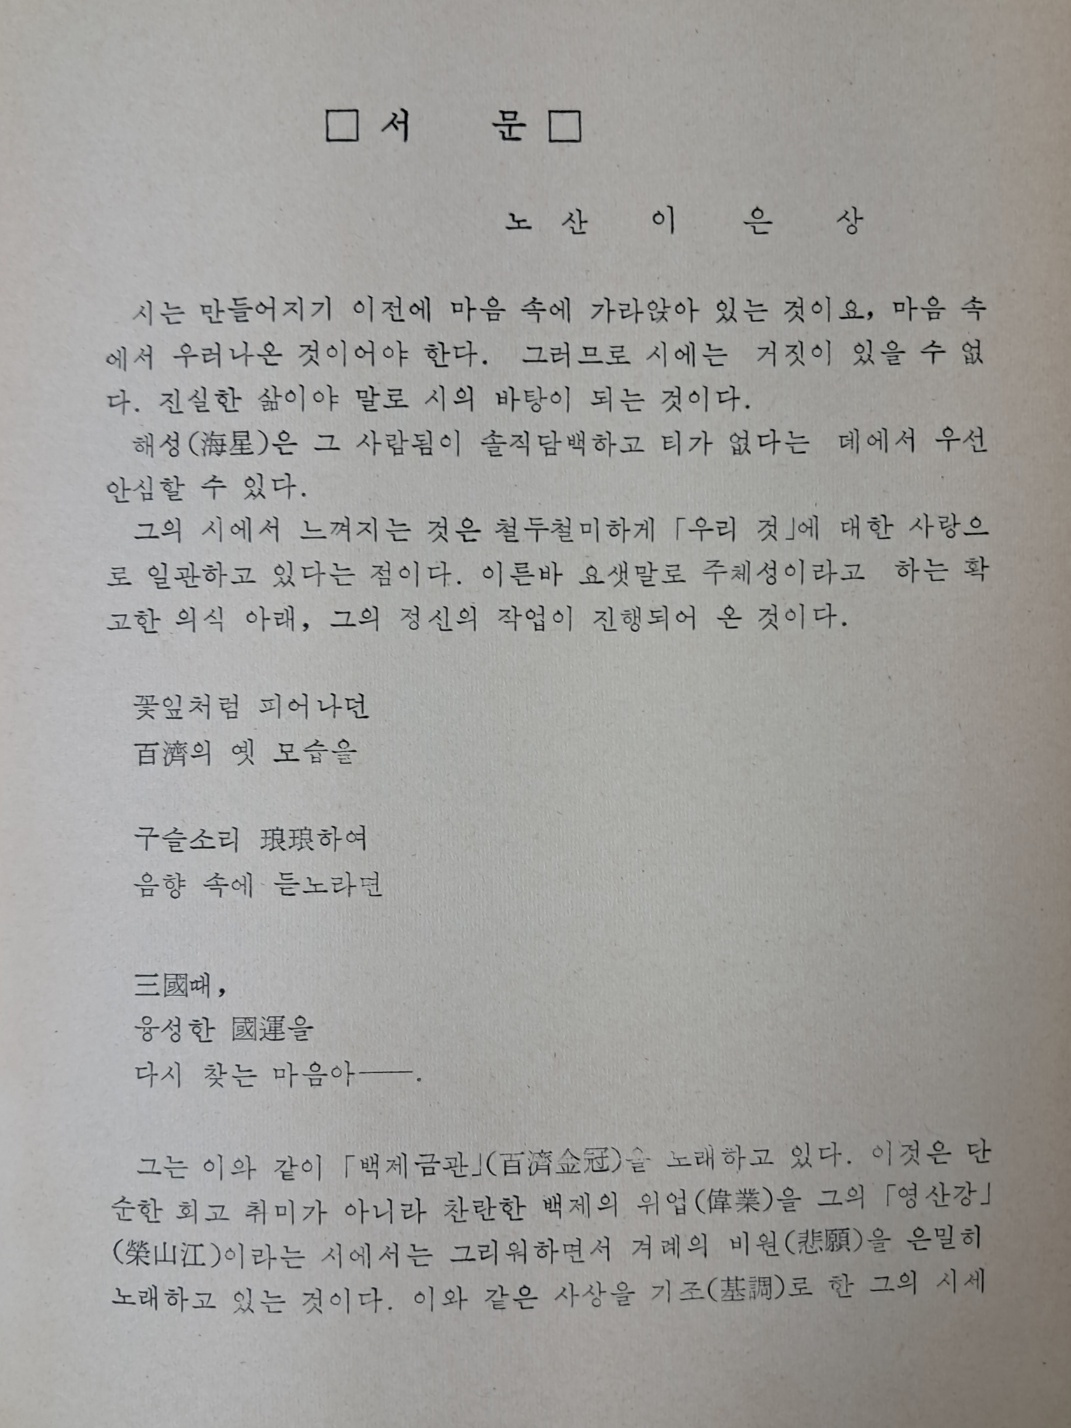 □ 서 문 □
노산 이 은 상
시는 만들어지기 이전에 마음 속에 가라앉아 있는 것이요, 마음 속
에서 우러나온 것이어야 한다. 그러므로 시에는 거짓이 있을 수 없
다. 진실한 삶이야 말로 시의 바탕이 되는 것이다.
해성(海星)은 그 사람됨이 솔직담백하고 티가 없다는 데에서 우선
안심할 수 있다.
그의 시에서 느껴지는 것은 철두철미하게 「우리 것」에 대한 사랑으
로 일관하고 있다는 점이다. 이른바 요샛말로 주체성이라고 하는 확
고한 의식 아래, 그의 정신의 작업이 진행되어 온 것이다.
꽃잎처럼 피어나던
百濟의 옛 모습을
구슬소리 琅琅하여
음향 속에 듣노라면
三國때,
융성한 國運을
다시 찾는 마음아――.
그는 이와 같이 「백제금관」(百濟金冠)을 노래하고 있다. 이것은 단
순한 회고 취미가 아니라 찬란한 백제의 위업(偉業)을 그의 「영산강」
(榮山江)이라는 시에서는 그리워하면서 겨레의 비원(悲願)을 은밀히
노래하고 있는 것이다. 이와 같은 사상을 기조(基調)로 한 그의 시세